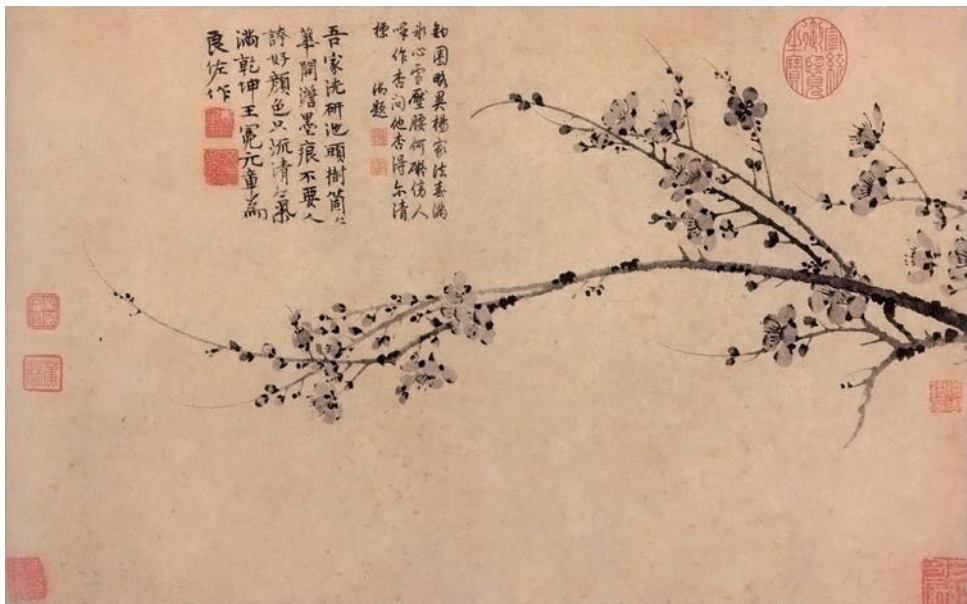 宣統
御覽
之寶
鉤圈畧異楊家法春滿
冰心雪壓腰何礙傍人
喚作杏問他杏得尓清
標 御題
吾家洗研池頭樹箇〻
華開澹墨痕不要人
誇好顏色只流清氣
滿乾坤王冕元章為
良佐作